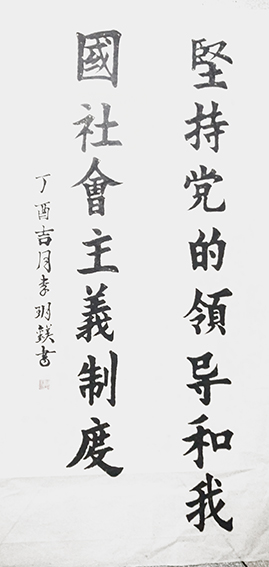 堅持党的領导和我
國社會主義制度
丁酉吉月李明鎂書